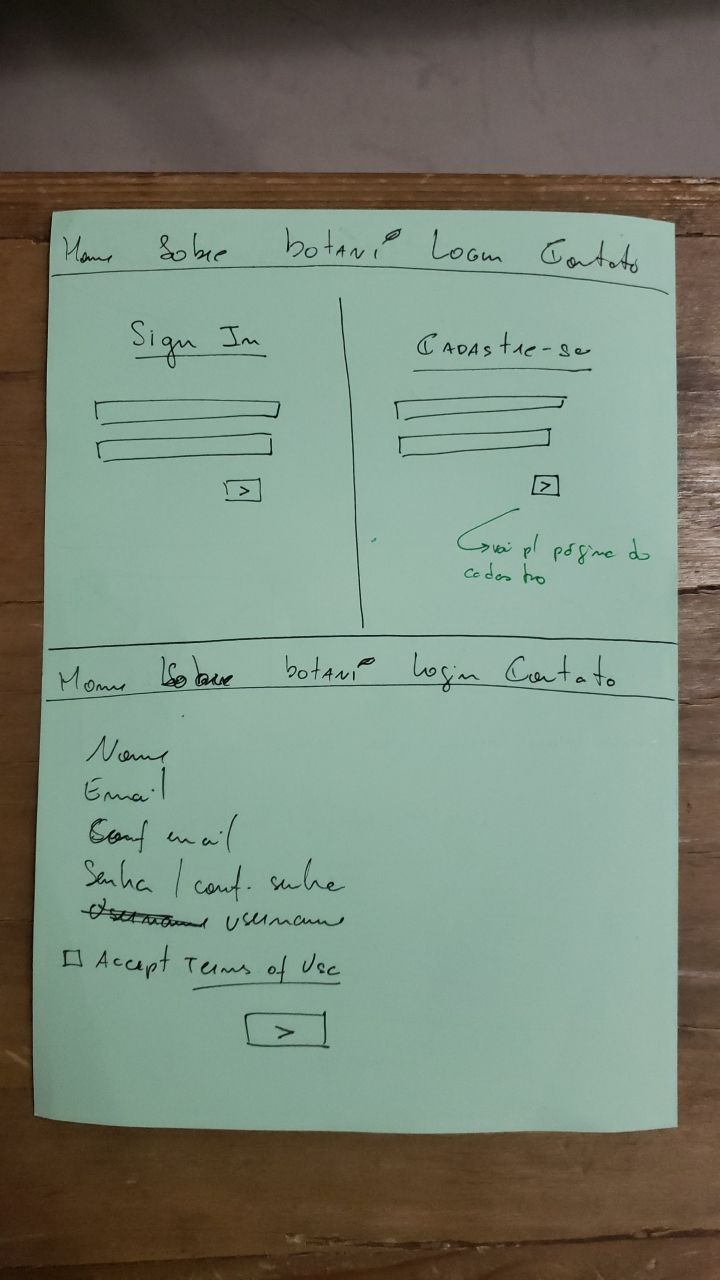 Home Sobre botANi Login Contato
Sign In
CADAStre-se
>
>
vai p/ página do
cadastro
Home Sobre botANi Login Contato
Nome
Email
Conf email
Senha / conf. senha
Username username
Accept Terms of Use
>